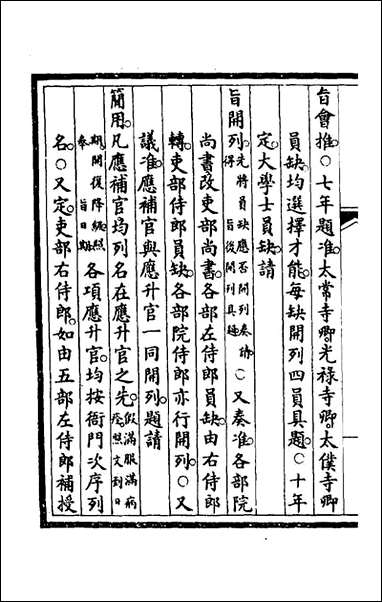 旨會推○七年題准太常寺卿光祿寺卿太僕寺卿
員缺均選擇才能每缺開列四員具題○十年
定大學士員缺請
旨開列先將員缺應否開列奏請得 旨後開列具題○又奏准各部院
尚書改吏部尚書各部左侍郎員缺由右侍郎
轉吏部侍郎員缺各部院侍郎亦行開列○又
議准應補官與應升官一同開列題請
簡用凡應補官均列名在應升官之先假滿服滿病痊照文到日
期開復降級照奉 旨日期各項應升官均按衙門次序列
名○又定吏部右侍郎如由五部左侍郎補授